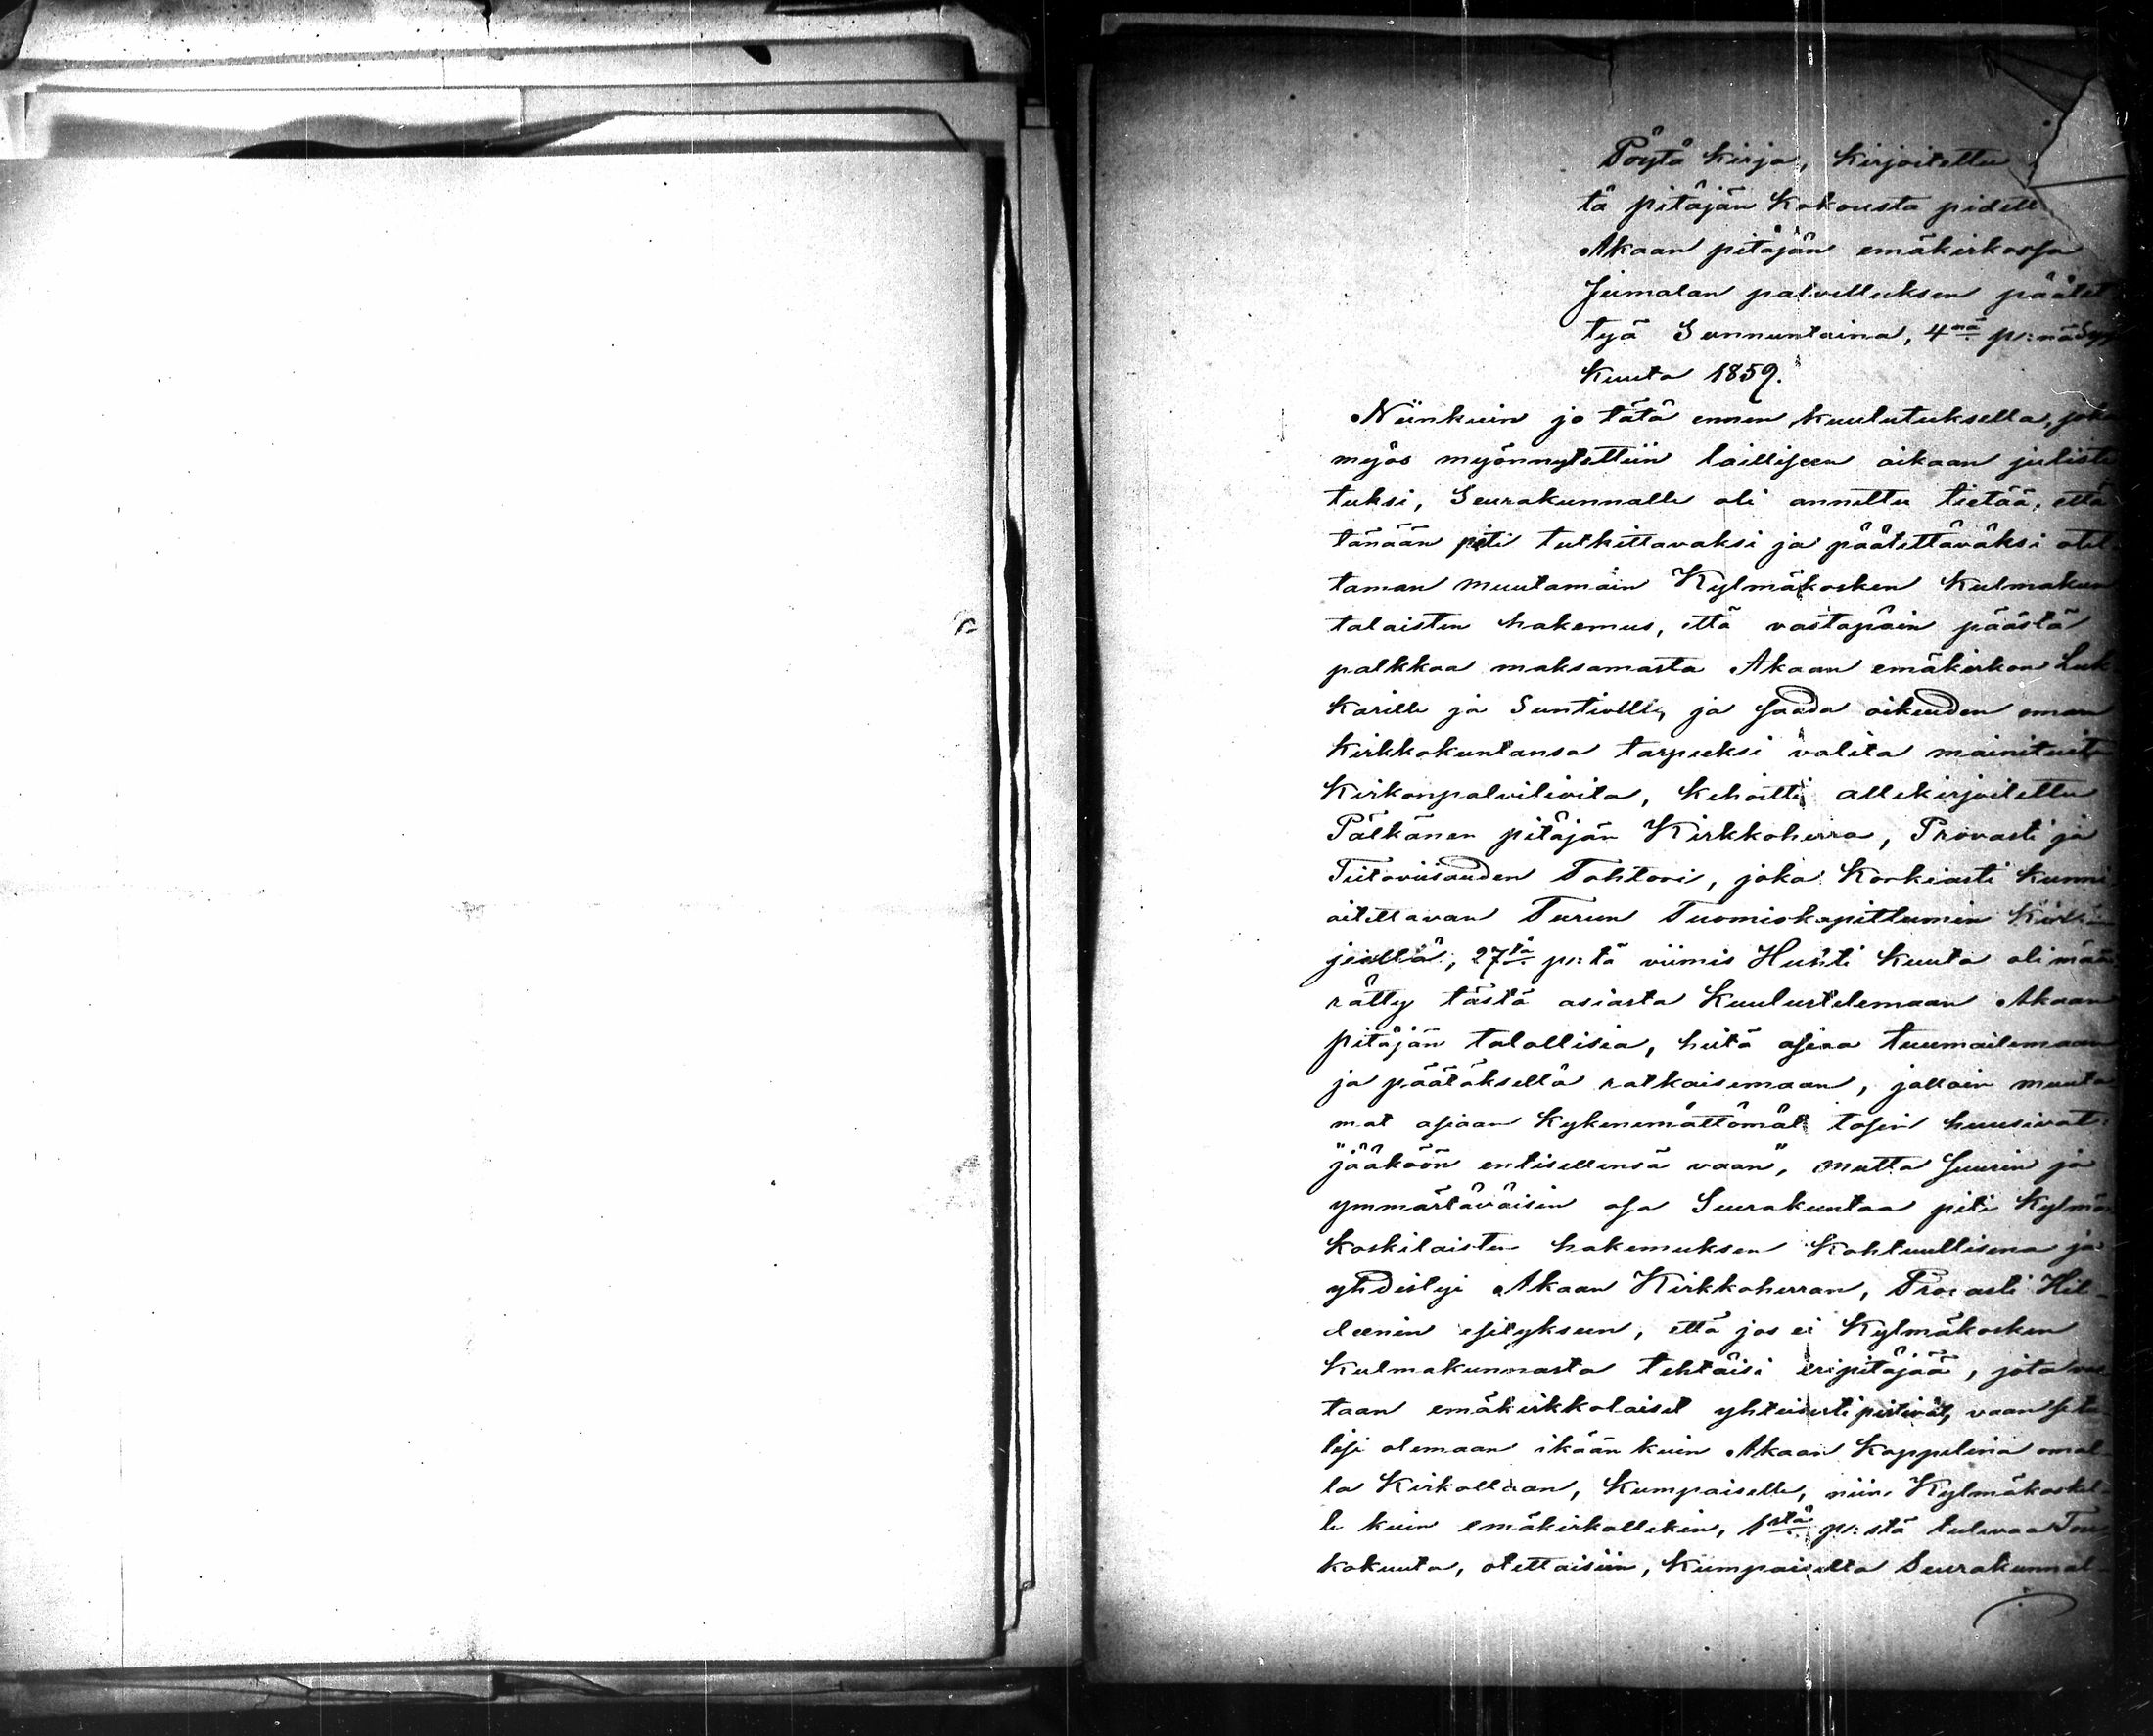 Pöytä Kirja, Kirjoitettu
tä pitäjän Kokousta pidett
Akaan pitäjän emäkirkossa
Jumalan palvelluksen päätet
tyä Sunnuntaina, 4nä p:nä Syys
Kuuta 1859.
Niinkuin jo tätä ennen kuulutuksella, joka
myös myönnytettiin lailliseen aikaan juliste
tuksi, Seurakunnalle oli annettu tietää, että
tänään piti tutkittavaksi ja päätettäväksi otet
taman muutamain Kylmäkosken Kulmakun
talaisten hakemus, että vastapäin päästä
palkkaa maksamasta Akaan emäkirkon Luk
karille ja Suntiolle, ja saada oikeuden oman
Kirkkokuntansa tarpeeksi valita mainituit
Kirkonpalvelivita, Kehoitti allekirjoitettu
Pälkänen pitäjän Kirkkoherra, Provasti ja
Tiitoviisauden Tohtori, joka Korkiasti Kunni
oitettavan Turun Tuomiokapittumin Kirk
jeellä, 27tä p:tä viimis Huhti Kuuta oli mää
rätty tästä asiasta Kuulustelemaan Akaan
pitäjän talollisia, heitä asiaa tuumailemaan
ja päätöksellä ratkaisemaan, jolloin muuta
mat asiaan Kykenemättömät tosin huusivat:
"jääköön entisellensä vaan", mutta suurin ja
ymmärtäväisin osa Seurakuntaa piti Kylmä
koskilaisten hakemuksen Kohtuullisena ja
yhdistyi Akaan Kirkkoherran, Provasti Hil-
deenin esitykseen, että jos ei Kylmäkosken
Kulmakunnasta tehtäisi eripitäjää, jota vas
taan emäkirkkolaiset yhteisesti pistivät, vaan se tu
lisi olemaan ikään kuin Akaan Kappelina omal
la Kirkollaan, Kumpaiselle, niin Kylmäkoskel-
le kuin emäkirkollekin, 1stä p:stä tulevaa Tou
kokuuta, otettaisiin, Kumpaiselta Seurakunnal-